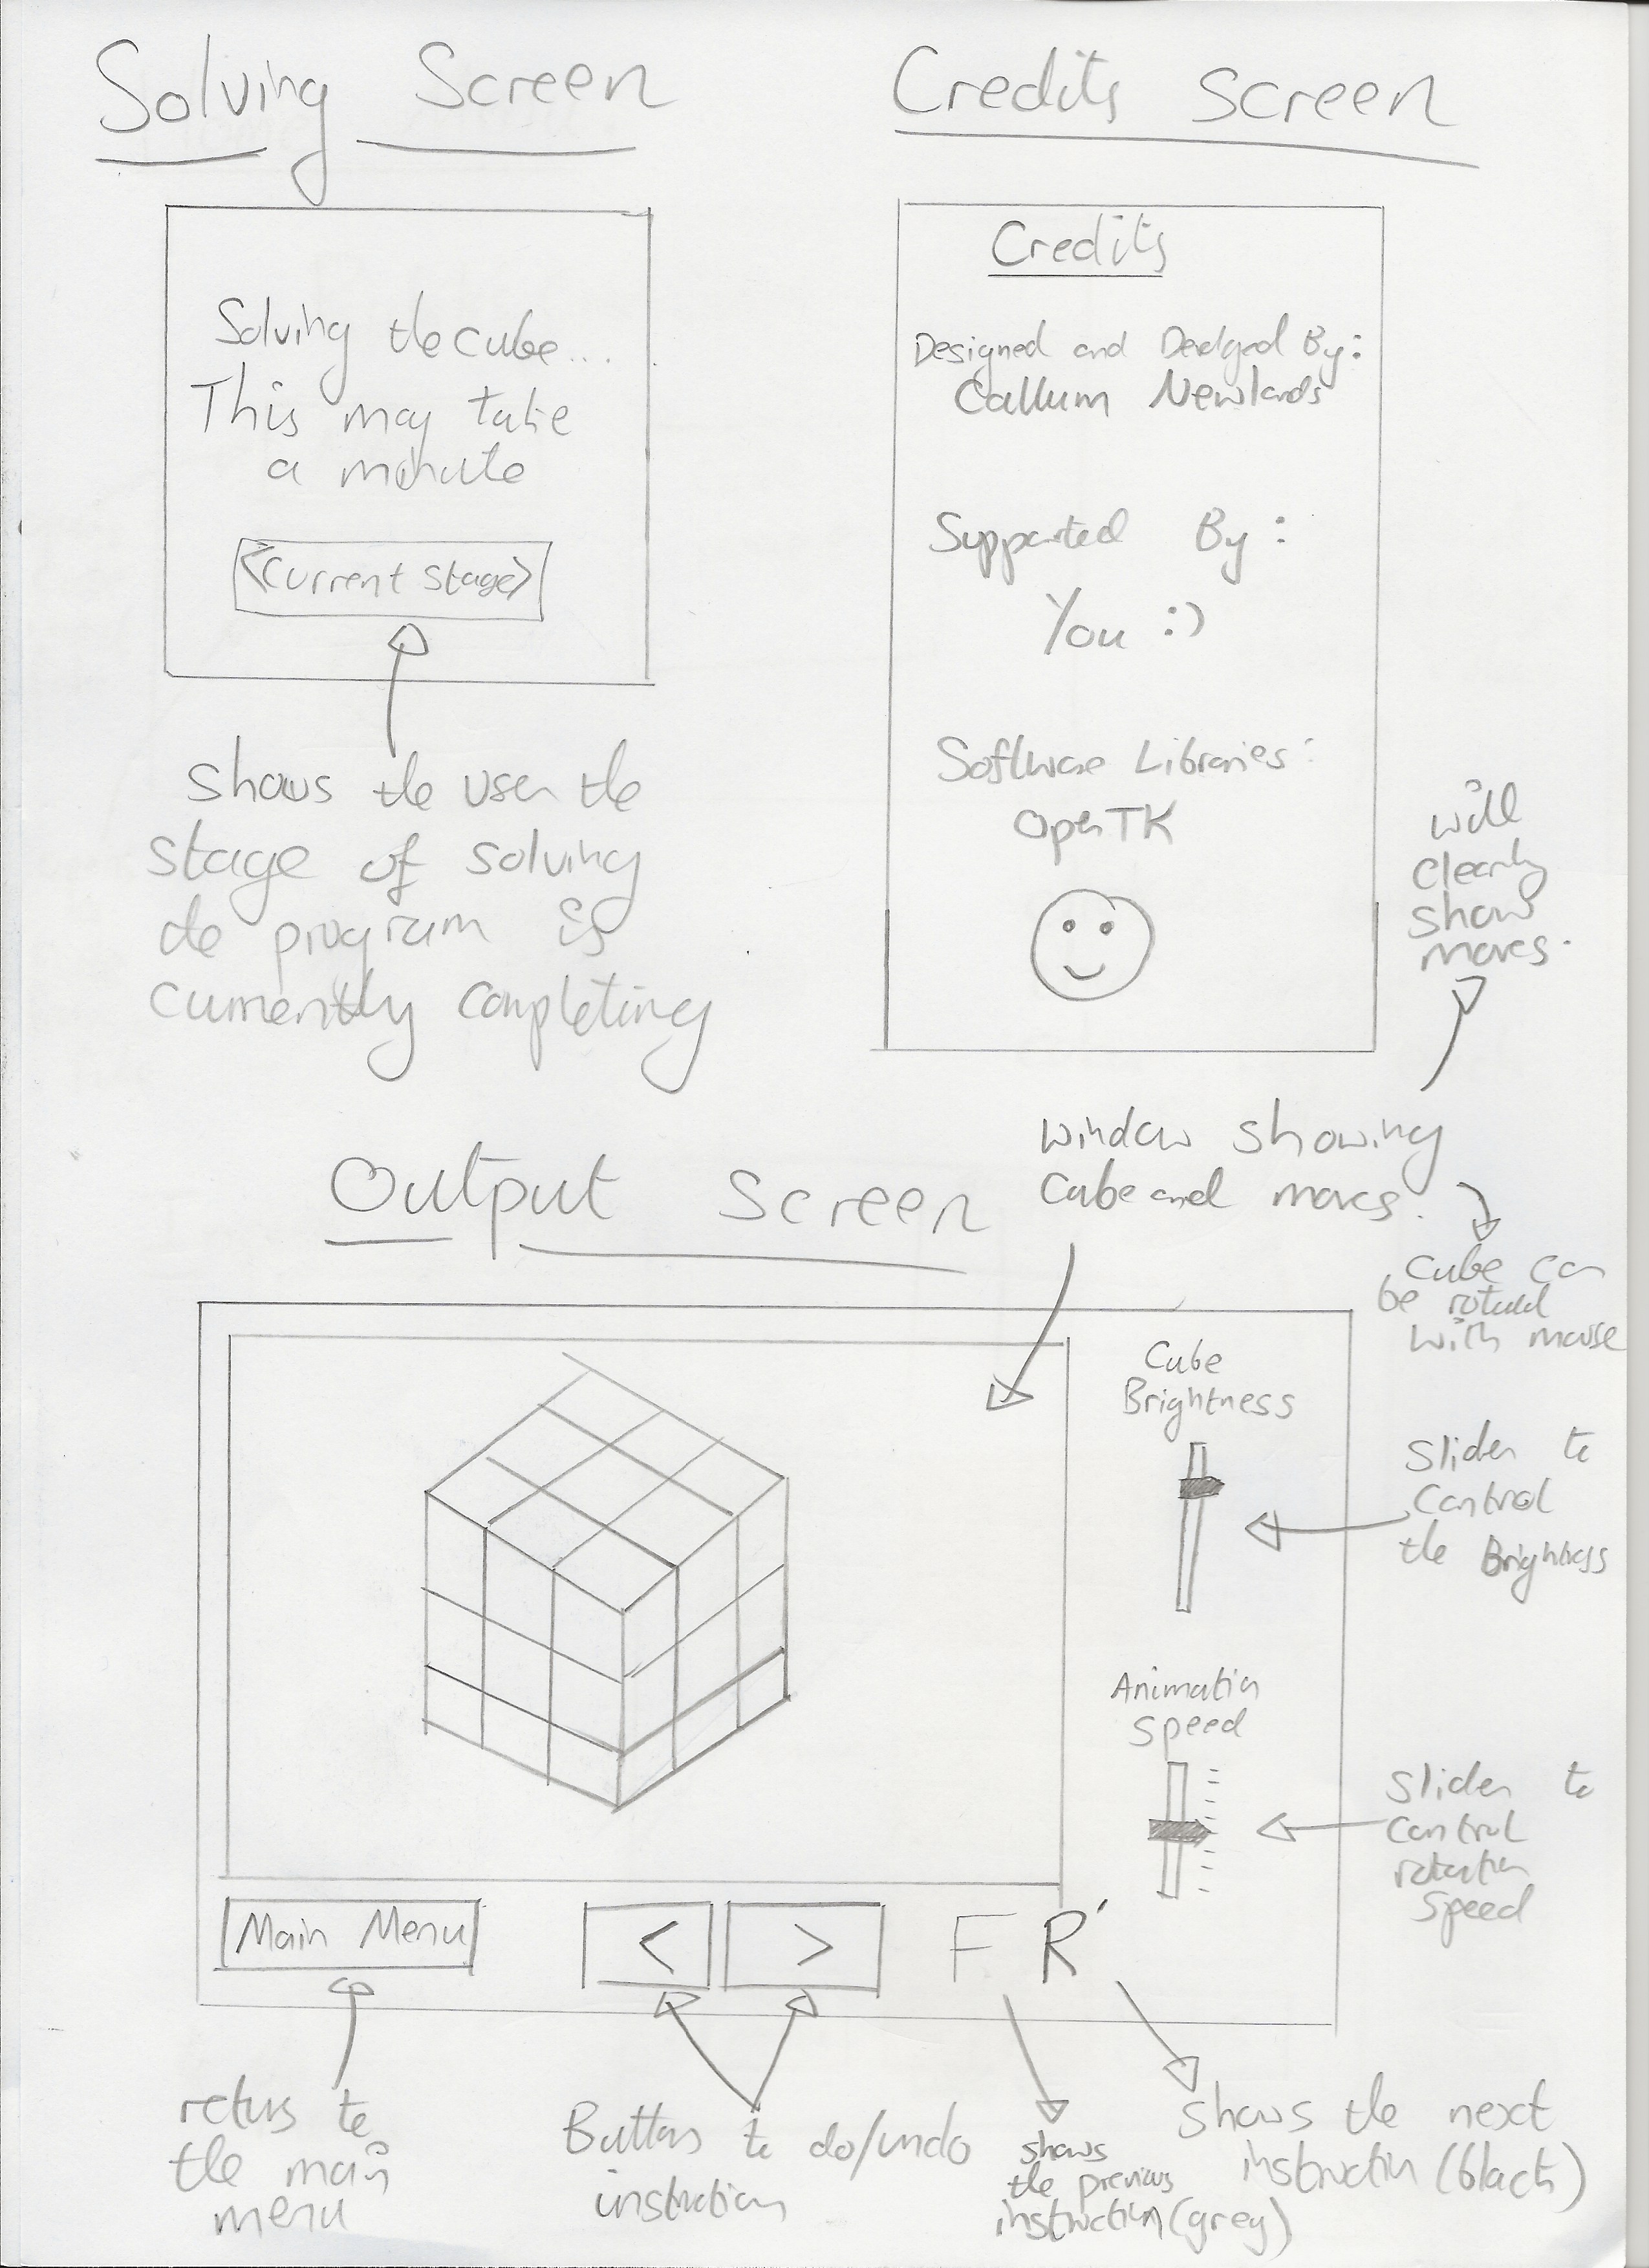 Solving Screen
Solving the cube...
This may take
a minute
<Current Stage>
shows the user the
stage of solving
the program is
currently completing
Credits Screen
Credits
Designed and Developed By:
Callum Newlands
Supported By:
You :)
Software Libraries:
OpenTK
will
clearly
show
moves.
window showing
cube and moves.
cube can
be rotated
with mouse
Output Screen
Cube
Brightness
Slider to
Control
the Brightness
Animation
Speed
Slider to
control
rotation
speed
Main Menu
<
>
F R'
returns to
the main
menu
Buttons to do/undo
instruction
shows
the previous
instruction (grey)
shows the next
instruction (black)